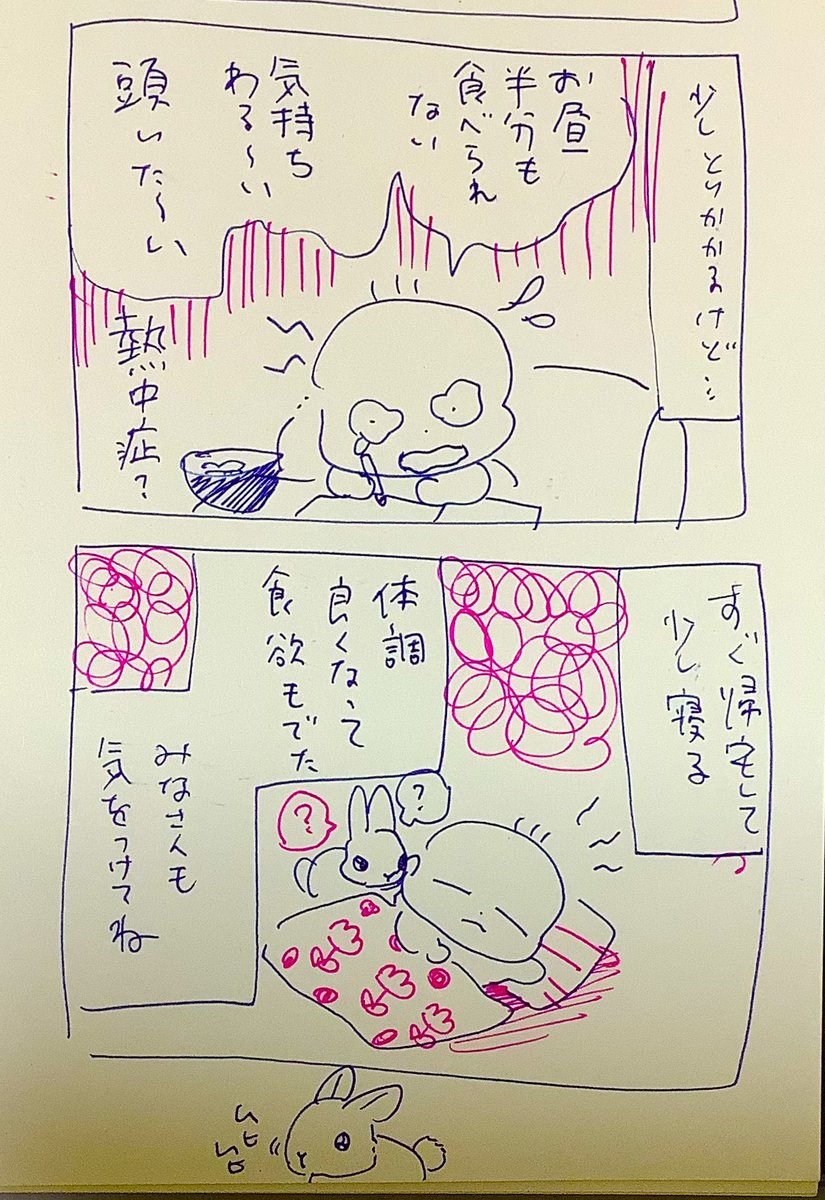 少しとりかかるけど…
お昼
半分も
食べられ
ない
気持ち
わる〜い
頭いた〜い
熱中症?
すぐ帰宅して
少し寝る
体調
良くなって
食欲もでた
?
?
みなさんも
気をつけてね